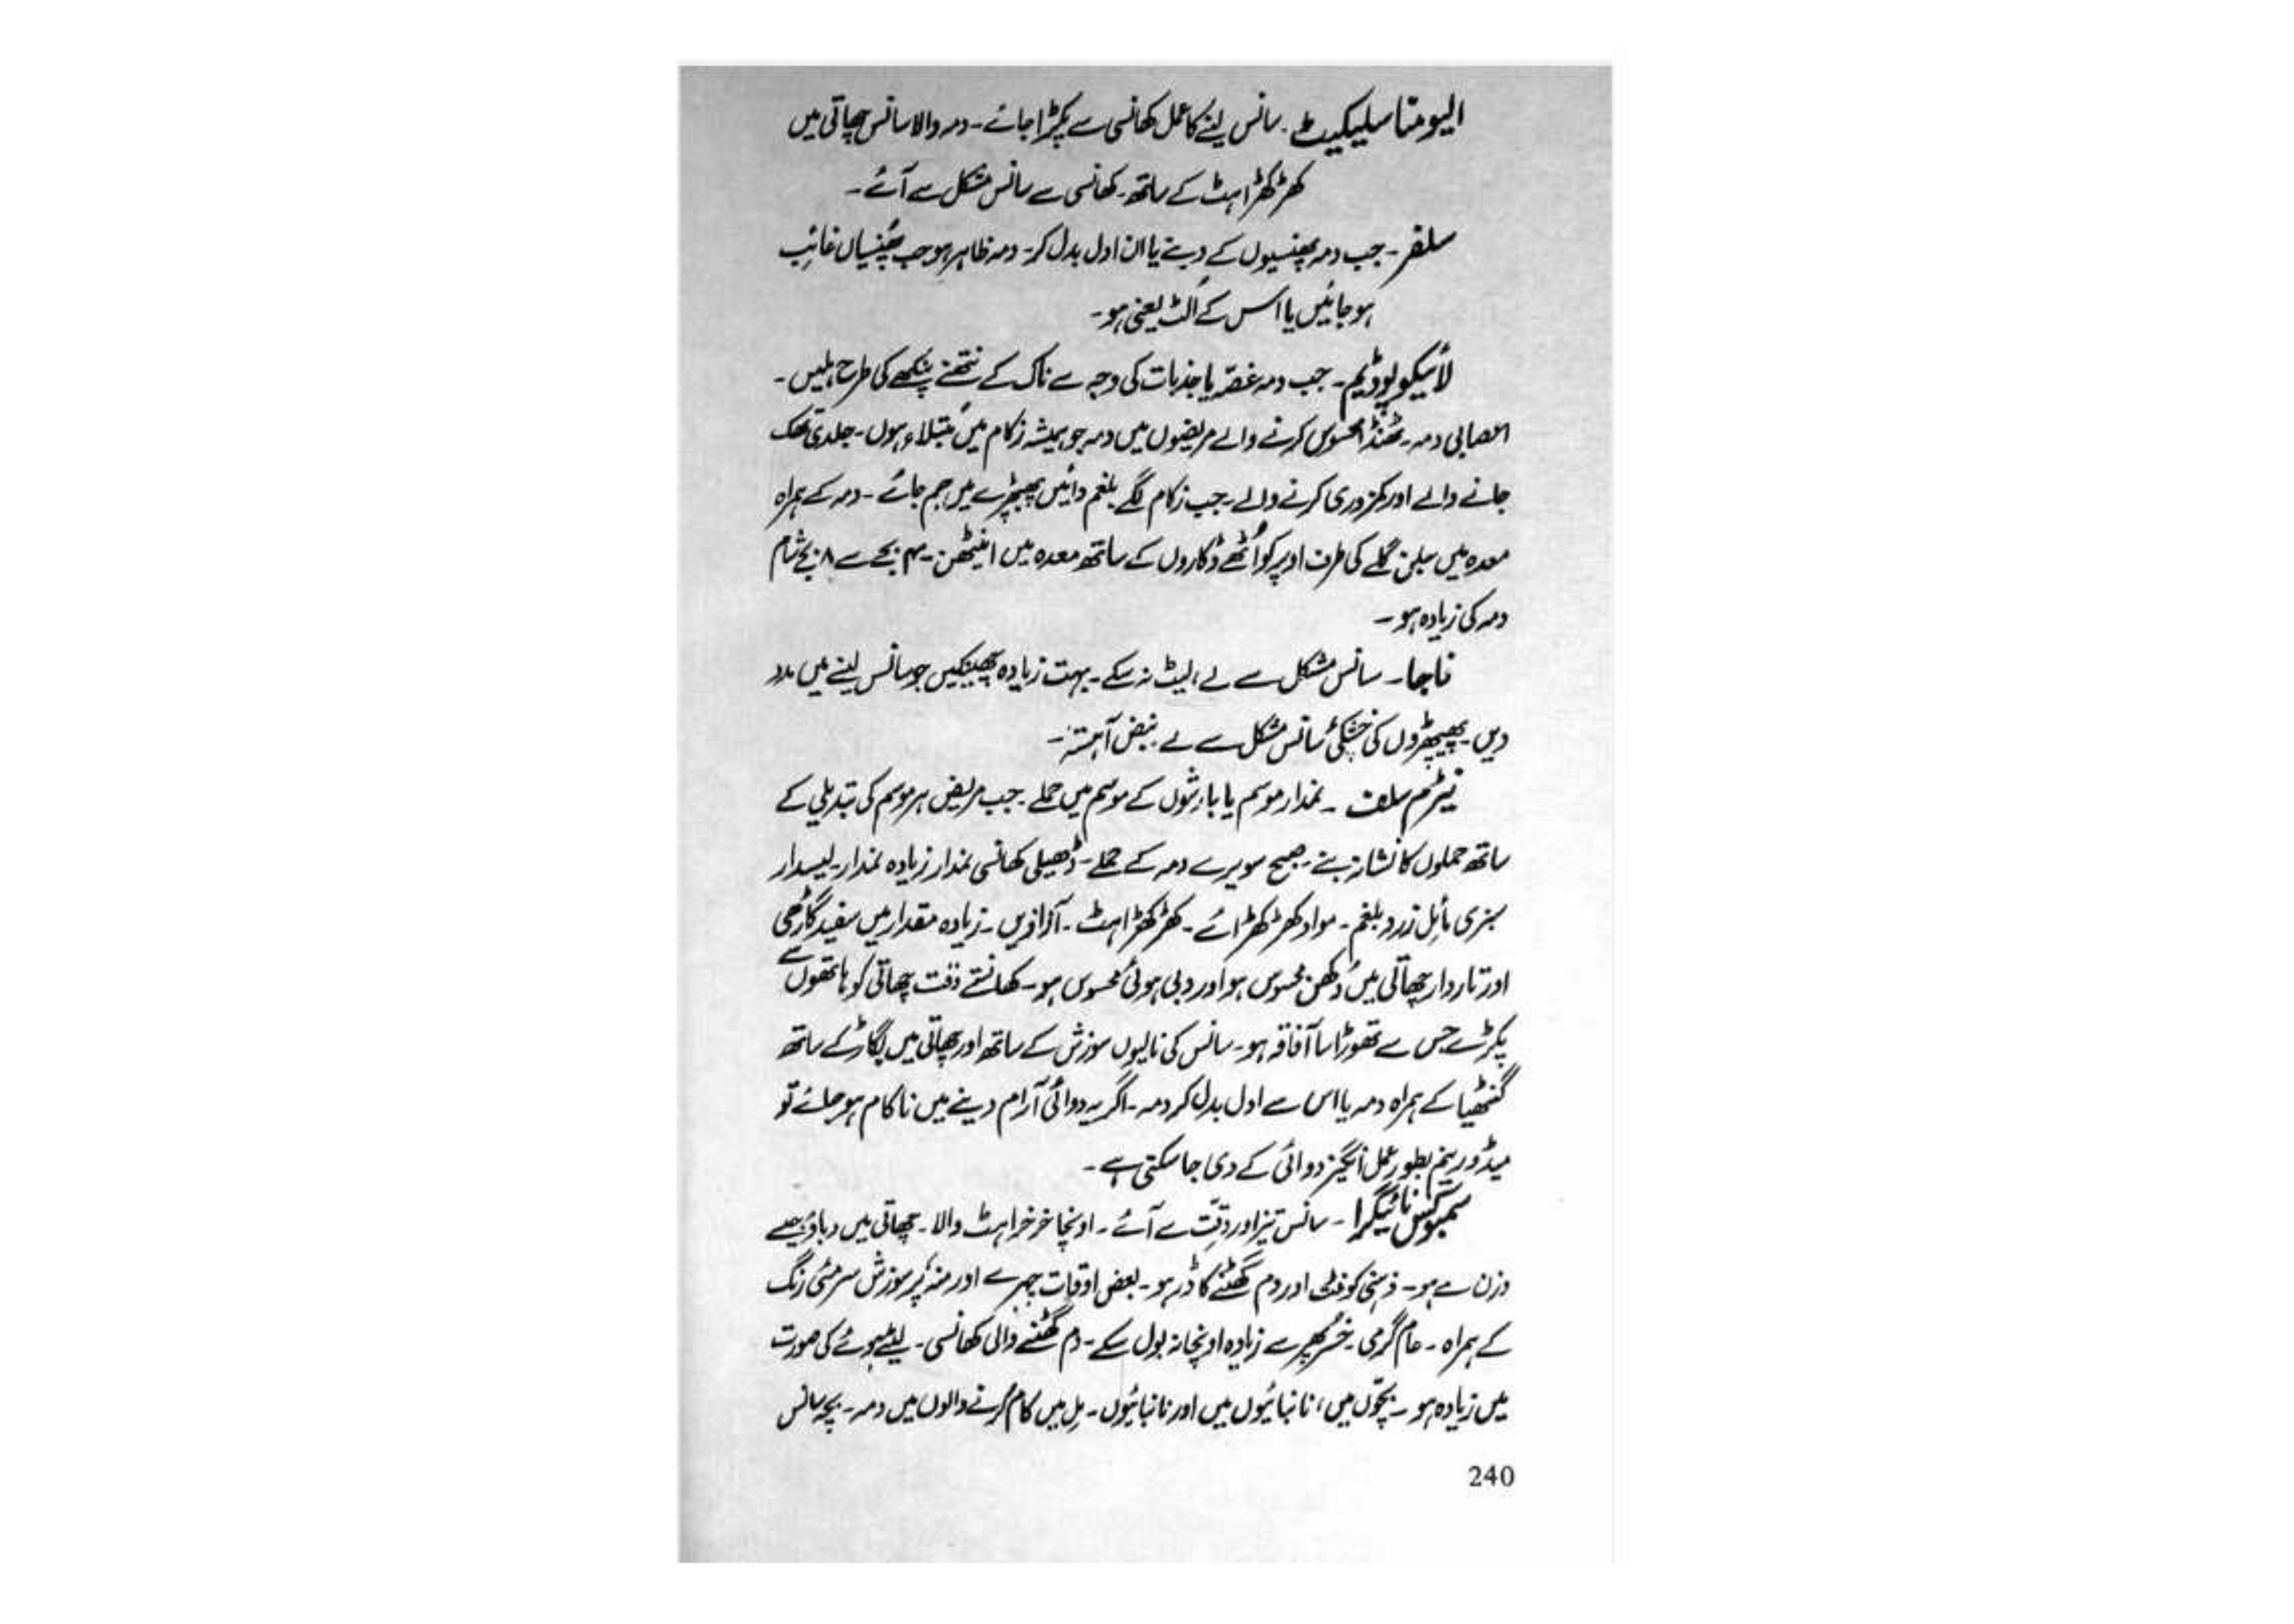 الیومنا سلیکیٹ۔ سانس لینے کا عمل کھانسی سے پکڑا جائے۔ دمہ والا سانس چھاتی میں
کھڑکھڑاہٹ کے ساتھ۔ کھانسی سے سانس مشکل سے آئے۔
سلفر۔ جب دمہ پھنسیوں کے دبنے یا ان ادل بدل کر۔ دمہ ظاہر ہو جب پھنسیاں غائب
ہو جائیں یا اس کے اُلٹ یعنی ہو۔
لائیکوپوڈیم۔ جب دمہ غصہ یا جذبات کی وجہ سے ناک کے نتھنے پنکھے کی طرح ہلیں۔
اعصابی دمہ۔ ٹھنڈا محسوس کرنے والے مریضوں میں دمہ جو ہمیشہ زکام میں مُبتلاء ہوں۔ جلدی تھک
جانے والے اور کمزوری کرنے والے۔ جب زکام لگے بلغم دائیں پھیپڑے میں جم جائے۔ دمہ کے ہمراہ
معدہ میں جلن گلے کی طرف اوپر کو اُٹھے ڈکاروں کے ساتھ معدہ میں اینٹھن۔ ۴ بجے سے ۸ بجے شام
دمہ کی زیادہ ہو۔
ناجا۔ سانس مشکل سے لے، لیٹ نہ سکے۔ بہت زیادہ چھینکیں جو سانس لینے میں مدد
دیں۔ پھیپھڑوں کی خشکی سانس مشکل سے لے۔ نبض آہستہ۔
نیٹرم سلف۔ نمدار موسم یا بارشوں کے موسم میں حملے۔ جب مریض ہر موسم کی تبدیلی کے
ساتھ حملوں کا نشانہ بنے۔ صبح سویرے دمہ کے حملے۔ ڈھیلی کھانسی نمدار زیادہ نمدار۔ لیسدار
سبزی مائل زرد بلغم۔ مواد کھڑکھڑائے۔ کھڑکھڑاہٹ۔ آوازیں۔ زیادہ مقدار میں سفید گاڑھی
اور تاردار چھاتی میں دُکھن محسوس ہو اور دبی ہوئی محسوس ہو۔ کھانستے وقت چھاتی کو ہاتھوں سے
پکڑے جس سے تھوڑا سا آفاقہ ہو۔ سانس کی نالیوں سوزش کے ساتھ اور چھاتی میں بگاڑ کے ساتھ
گنٹھیا کے ہمراہ دمہ یا اس سے ادل بدل کر دمہ۔ اگر یہ دوائی آرام دینے میں ناکام ہو جائے تو
میڈورینم بطور عمل انگیز دوائی کے دی جا سکتی ہے۔
سمبوکس نائیگرا۔ سانس تیز اور دقّت سے آئے۔ اونچا خرخراہٹ والا۔ چھاتی میں دباؤ جیسے
وزن سے ہو۔ ذہنی کوفت اور دم گھٹنے کا ڈر ہو۔ بعض اوقات چہرے اور منہ پر سوزش سرمئی رنگ
کے ہمراہ۔ عام گرمی۔ سے زیادہ اونچا نہ بول سکے۔ دم گھٹنے والی کھانسی۔ لیٹے ہوئے کی صورت
میں زیادہ ہو۔ بچّوں میں، نانبائیوں میں اور نانبائیوں۔ مِل میں کام کرنے والوں میں دمہ۔ بچہ سانس
240